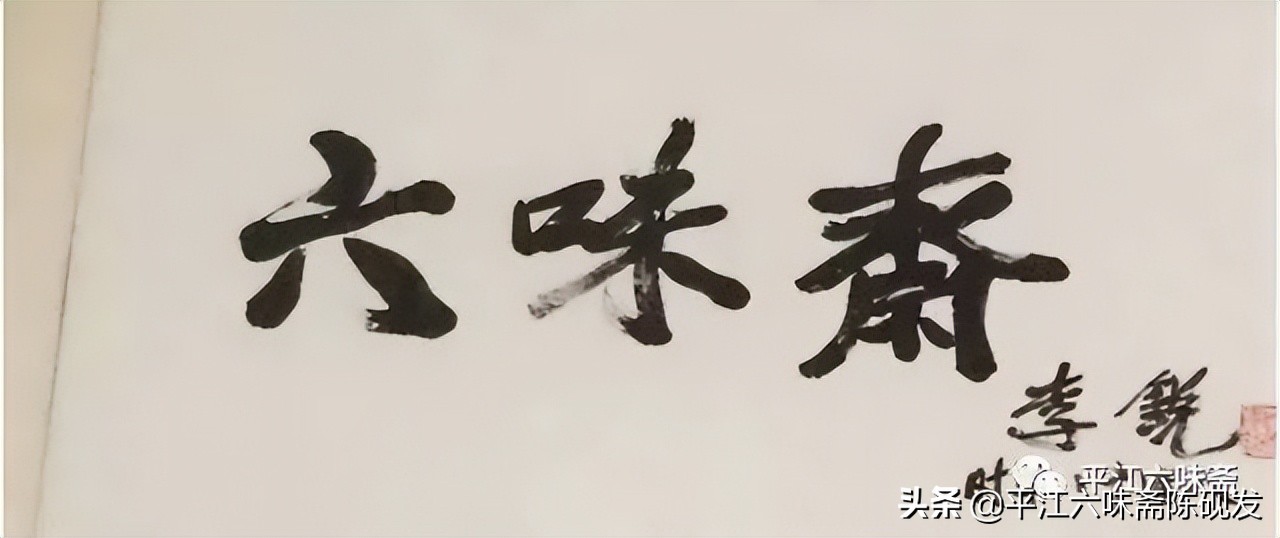 六味斋
李锐
时
平江六味斋
头条 @平江六味斋陈砚发